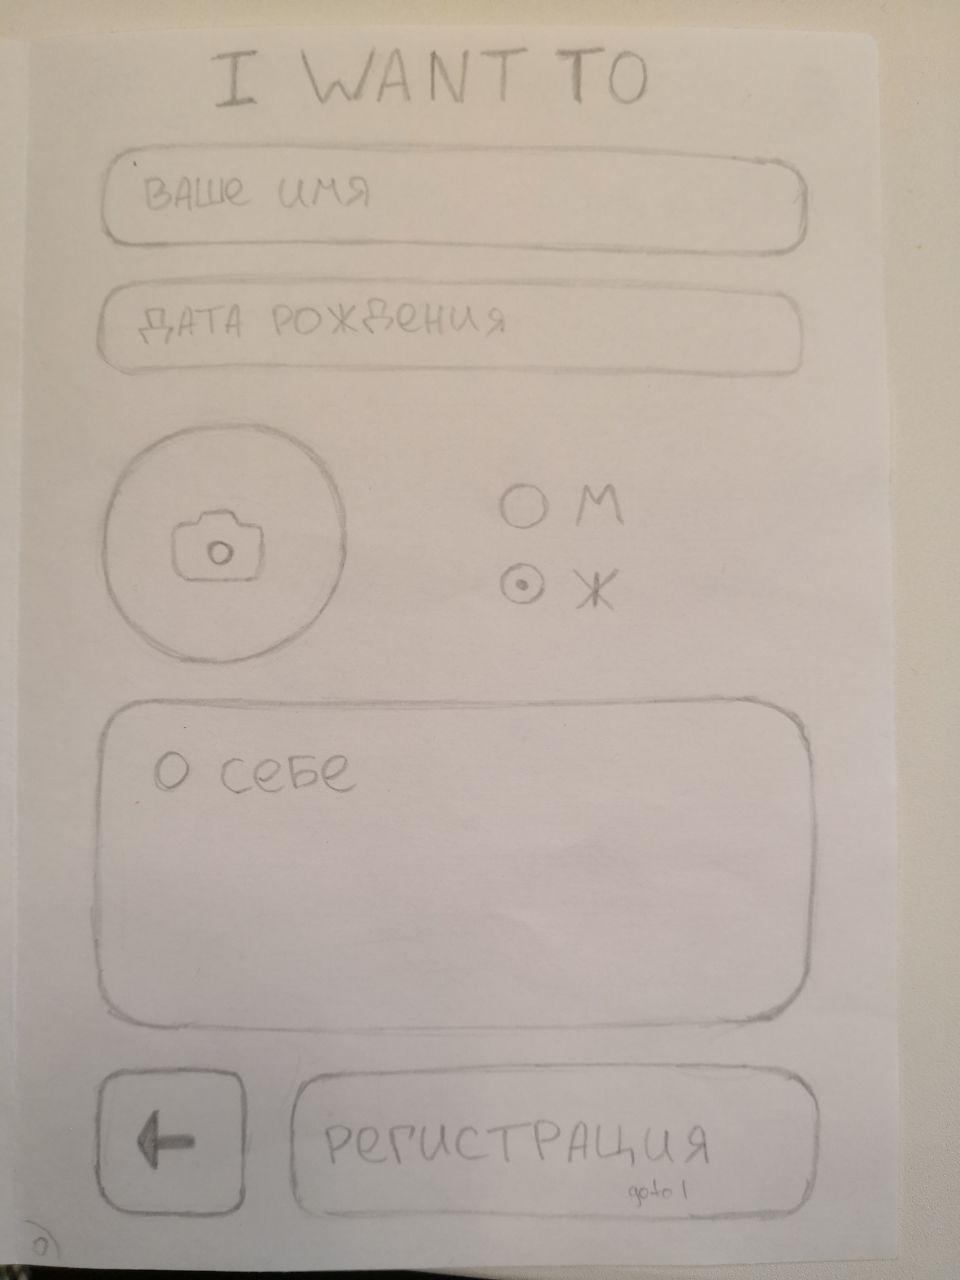 I WANT TO
ВАШЕ ИМЯ
ДАТА РОЖДЕНИЯ
М
Ж
О СЕБЕ
РЕГИСТРАЦИЯ
goto 1
0)